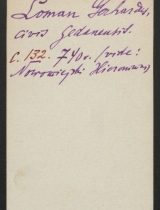 Loman Gerhardus,
civis Gedanensis.
C. 132. 740v. (vide:
Nowowiejski Hieronimus